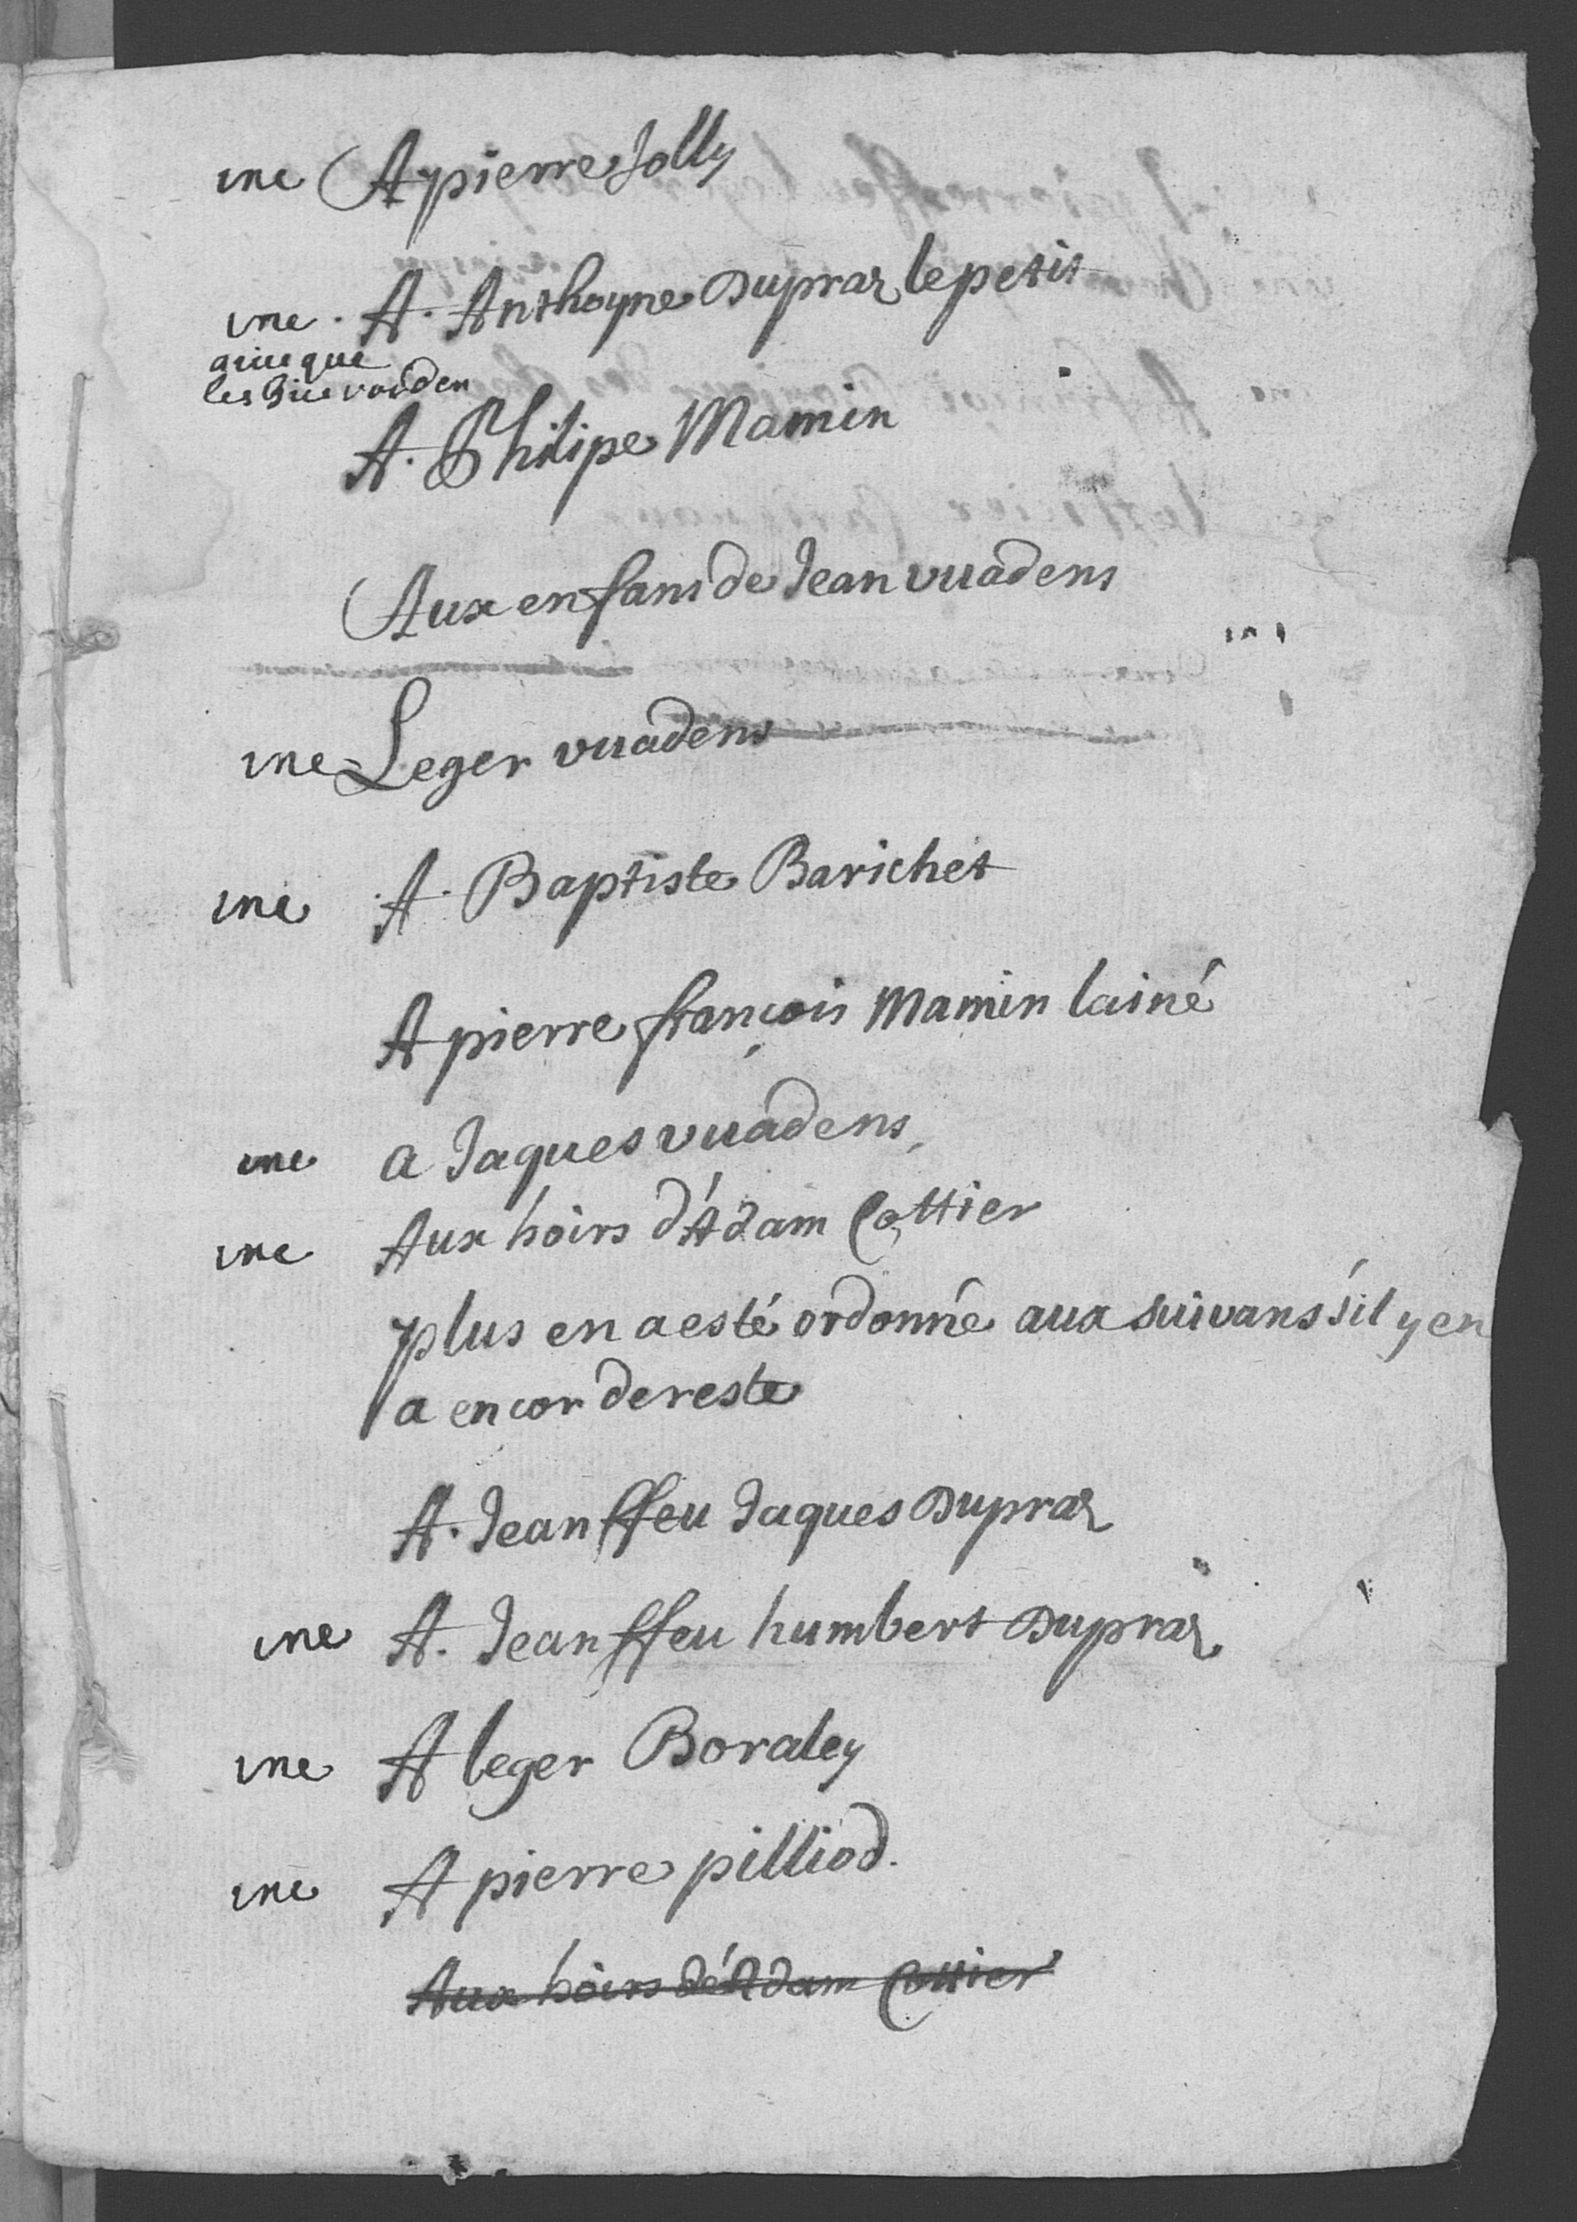 une A pierre Jolly
une . A. Anthoyne Dupraz le petit
les vouden
A. Philipe Mamin
Aux enfans de Jean vuadens
une Leger vuadens
une A. Baptiste Barichet
A pierre françois Mamin lainé
une a Jaques vuadens,
une Aux hoirs d'Adam Cottier
plus en a esté ordonné aux suivans s'il y en
a encor de reste
A. Jean ffeu Jaques Dupraz
une A. Jean ffeu humbert Dupraz
une A leger Boraley
une A pierre pilliod.
Aux hoirs d'Adam Cottier